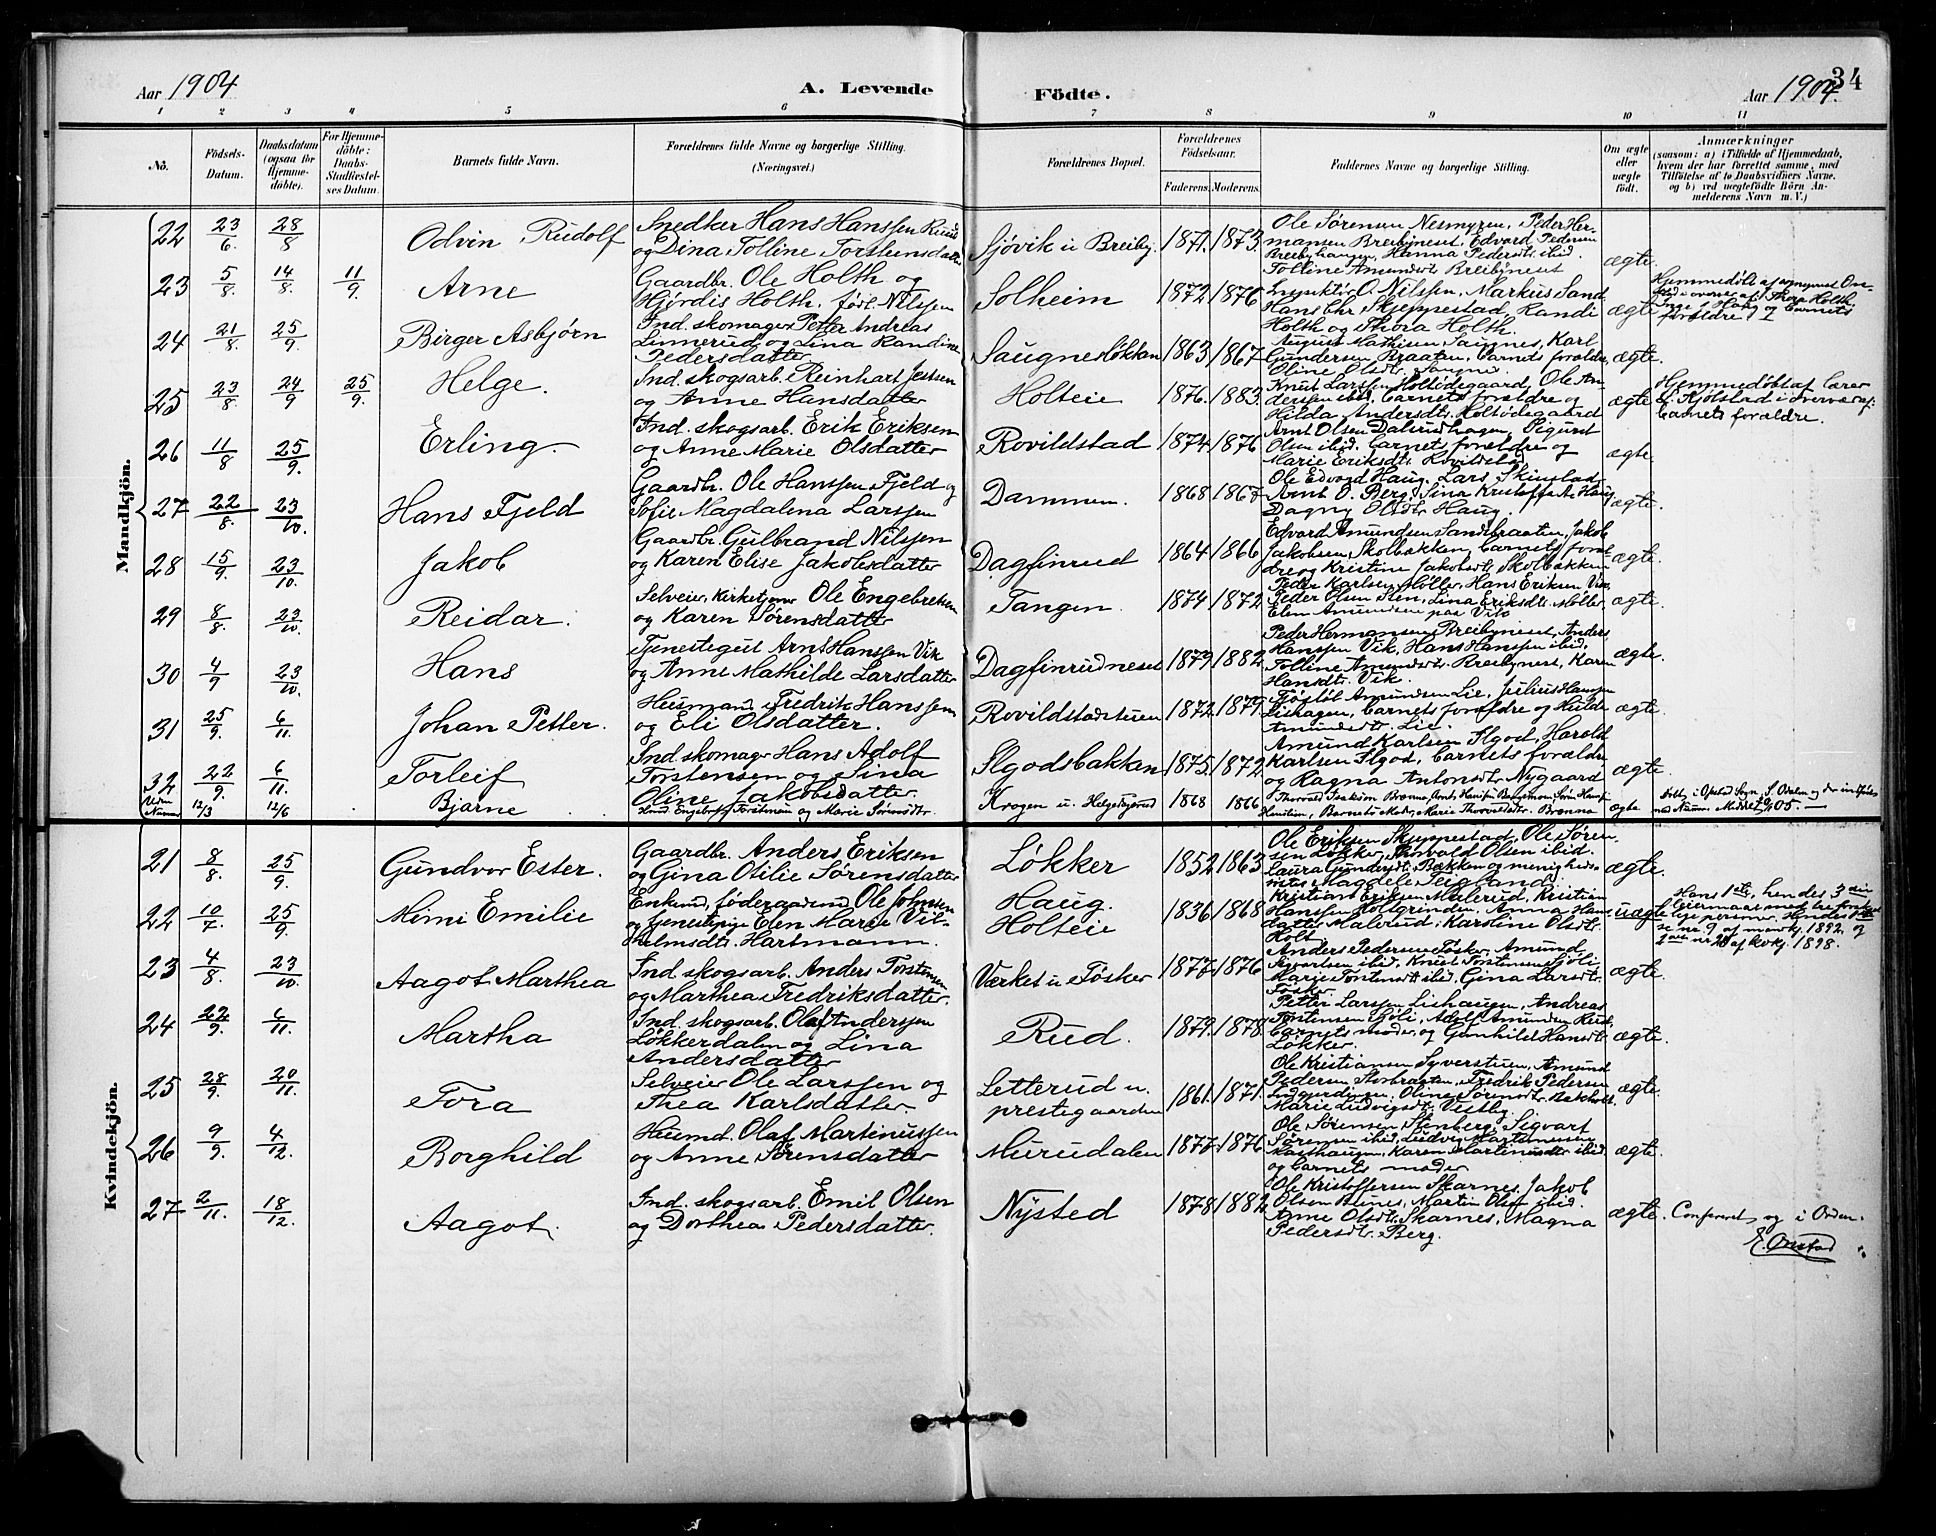 Aar 1904
A. Levende
Födte.
Aar 1904.
34
1 2 3 4 5 6 7 8 9 10 11
No.
Födsels-Datum.
Daabsdatum (ogsaa for Hjemme-döbte).
For Hjemme-döbte: Daabs-Stadfæstel-ses Datum.
Barnets fulde Navn.
Forældrenes fulde Navne og borgerlige Stilling.
(Næringsvei.)
Forældrenes Bopæl.
Forældrenes Födselsaar.
Faderens. Moderens.
Faddernes Navne og borgerlige Stilling.
Om ægte eller uægte födt.
Anmærkninger
(saasom: a) i Tilfælde af Hjemmedaab,
hvem der har forrettet samme, med
Tilföielse af to Daabsvidners Navne.
og b) ved uægtefödte Börn An-
melderens Navn m. V.)
Mandkjön.
22 23/6. 28/8 Odvin Rudolf
Snedker Hans Hanssen
og Dina Tolline Torstensdatter
Sjøvik u Breiby. 1871. 1873.
Ole Sørensen Nesmyren, Peder Her-
mansen Breibyneset, Edvard Pedersen
Breibyhaugen, Hanna Pedersdt. ibid.
Tolline Amundsdt Breibyneset
ægte.
23 5/8. 14/8. 11/9. Arne
Gaardbr. Ole Holth og
Hjørdis Holth, født Nilssen
Solheim 1872 1876
Inspektør O. Nilssen, Markus Sand,
Hans Skjeppestad, Randi
Holth og Thora Holth.
ægte
Hjemmedøbt af
overvær af Thora Holth,
Haug og barnets
forældre
24 21/8. 25/9. Birger Asbjørn
Ind. skomager Petter Andreas
Linnerud og Lina Randine
Pedersdatter
Saugnesløkken 1863 1867
August Mathisen Saugnes, Karl
Gundersen Braaten, barnets forældre,
Oline Olsdt. Saugnes
ægte.
25 23/8 24/9 25/9. Helge.
Ind. skogsarb. Reinhart Jensen
og Anne Hansdatter
Holteie 1876. 1883.
Knut Larssen Holtødegaard, Ole An-
derssen ibid, barnets forældre og
Hilda Andersdtr. Holtødegaard
ægte
Hjemmedøbt af lærer
Kjølstad i overvær af
barnets forældre.
26 11/8 25/9. Erling.
Ind. skogsarb. Erik Eriksen
og Anne Marie Olsdatter
Rovildstad 1874 1876
Arnt Olsen Dalsrudhagen, Sigurd
Olsen ibid. barnets forældre og
Marie Eriksdt. Rovildstad
ægte
27 22/8. 23/10. Hans Fjeld
Gaardbr. Ole Hanssen Fjeld og
Sofie Magdalena Larssen
Dammen. 1868 1867
Ole Edvard Haug, Lars Skinstad,
Arnt O. Berg, Sina Haug
Dagny Olsdtr Haug.
ægte.
28 15/9. 23/10. Jakob
Gaardbr. Gulbrand Nilssen
og Karen Elise Jakobsdatter
Dagfinrud 1864 1866
Edvard Amundsen Sandbraaten, Jakob
Jakobsen Skolbækken, barnets foræl-
dre og Kristine Jakobsdt. Skolbækken
ægte.
29 8/8. 23/10. Reidar.
Selveier, kirketjener Ole Engebretsen
og Karen Sørensdatter
Tangen. 1874 1872
Peder Karlsen Møller, Hans Eriksen Vik
Peder Olsen Sten, Lina Eriksdt. Møller
Elen Amundsen paa Vik
ægte.
30 4/9 23/10. Hans
Tjenestegut Arnt Hanssen Vik
og Anne Mathilde Larsdatter
Dagfinrudneset 1879 1882
Peder Hermansen Breibyneset, Anders
Hanssen Vik, Hans Hanssen ibid,
Tolline Amundsdt. Breibyneset, Karen
Hansdt. Vik.
ægte.
31 25/9. 6/11. Johan Petter.
Heismand Fredrik Hanssen
og Eli Olsdatter.
Rovildstadstuen 1872 1879.
Amundsen Lie, Julius Hansen
Lishagen, barnets forældre og Hilda
Amundsdtr. Lie.
ægte.
32 22/9. 6/11. Torleif
Ind. skomager Hans Adolf
Torstensen og Sina
Oline Jakobsdatter.
Slgodsbakken 1875 1872
Amund Karlsen Slgod, Harald
Karlsen Slgod, barnets forældre
og Ragna Antonsdt Nygaard
ægte.
Uden Numer 12/3 12/6 Bjarne
Knud Engebretsen Torstensen og Marie Sørensdtr.
Krogen u. Helgebyrud 1868 1866
Thorvald Isaksen Brenna,
Barnets Moder, Marie Thorvaldsdtr. Brenna
ægte
i Opstad Sogn, S. Odalen og der indført
1905.
Kvindekjön.
21 8/8. 25/9. Gundvor Ester.
Gaardbr. Anders Eriksen
og Gina Otilie Sørensdatter
Løkker 1852 1863
Ole Eriksen Skjeppestad, Ole Søren-
sen Løkker, Thorvald Olsen ibid.
Laura Gundersdt. Bækken og menigheds-
søster Magdele Seigland
ægte.
22 10/7. 25/9. Mimi Emilie
Enkemd, føderaadsmd Ole Johnsen
og tjenestepige Elen Marie Vil-
helmsdt. Hartmann.
Haug.
Holteie
1836 1868
Kristian Eriksen Malerud, Kristian
Hanssen Holtgrinden, Anna Hans-
datter Malerud, Karoline Olsdt.
Holt.
uægte
Hans 1ste, hendes 3die
leiermaal med tre forskjel-
lige personer. Hendes 1ste
se nr. 9 af mandkj. 1892 og
2det nr. 28 af kvkj. 1898.
23 4/8. 23/10. Aagot Marthea
Ind. skogsarb. Anders Torstensen
og Marthea Fredriksdatter.
Værket u Føsker 1877 1876
Anders Pedersen Føsker, Amund
Sigvartsen ibid, Knut Torstensen Sjøli
Marie Torstensdt ibid. Gina Larsdt.
Føsker
ægte.
24 22/9. 6/11. Martha
Ind. skogsarb. Olaf Anderssen
Løkkerdalen og Lina
Andersdatter
Rud. 1879. 1878.
Petter Larssen Lishaugen, Andreas
Torstensen Sjøli, Adolf Amundsen Rud,
barnets moder, og Gunhild Hansdt.
Løkker.
ægte.
25 28/9. 20/11. Tora
Selveier Ole Larssen og
Thea Karlsdatter.
Letterud u.
prestegaarden
1861. 1871.
Ole Kristiansen Syverstuen, Amund
Pedersen Storbraaten, Fredrik Pedersen
Oline Sørensdt. Bækholt
Marie Ludvigsdt. Vestby.
ægte.
26 9/9. 4/12. Borghild
Heismd. Olaf Martinussen
og Anne Sørensdatter
Murudalen 1877 1876
Ole Sørensen Stenberg, Sigvart
Sørensen ibid, Ludvig Martinussen
Karen Martinusdtr ibid
og barnets moder
ægte.
27 2/11. 18/12. Aagot.
Ind. skogsarb. Emil Olsen
og Dorthea Pedersdatter.
Nysted 1878 1882
Ole Kristoffersen Skarnes, Jakob
Olsen Bunes, Martin Olsen ibid.
Anne Olsdt. Skarnes, Magna
Pedersdtr. Berg.
ægte.
Confereret og i Orden.
E. Onstad